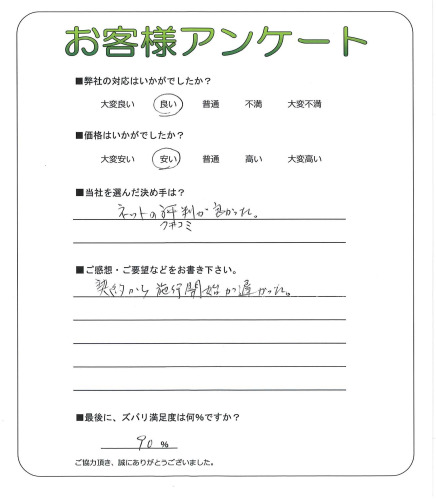 お客様アンケート
■弊社の対応はいかがでしたか?
大変良い 良い 普通 不満 大変不満
■価格はいかがでしたか?
大変安い 安い 普通 高い 大変高い
■当社を選んだ決め手は?
ネットの評判が良かった。
クチコミ
■ご感想・ご要望などをお書き下さい。
契約から施行開始が遅かった。
■最後に、ズバリ満足度は何%ですか?
90 %
ご協力頂き、誠にありがとうございました。